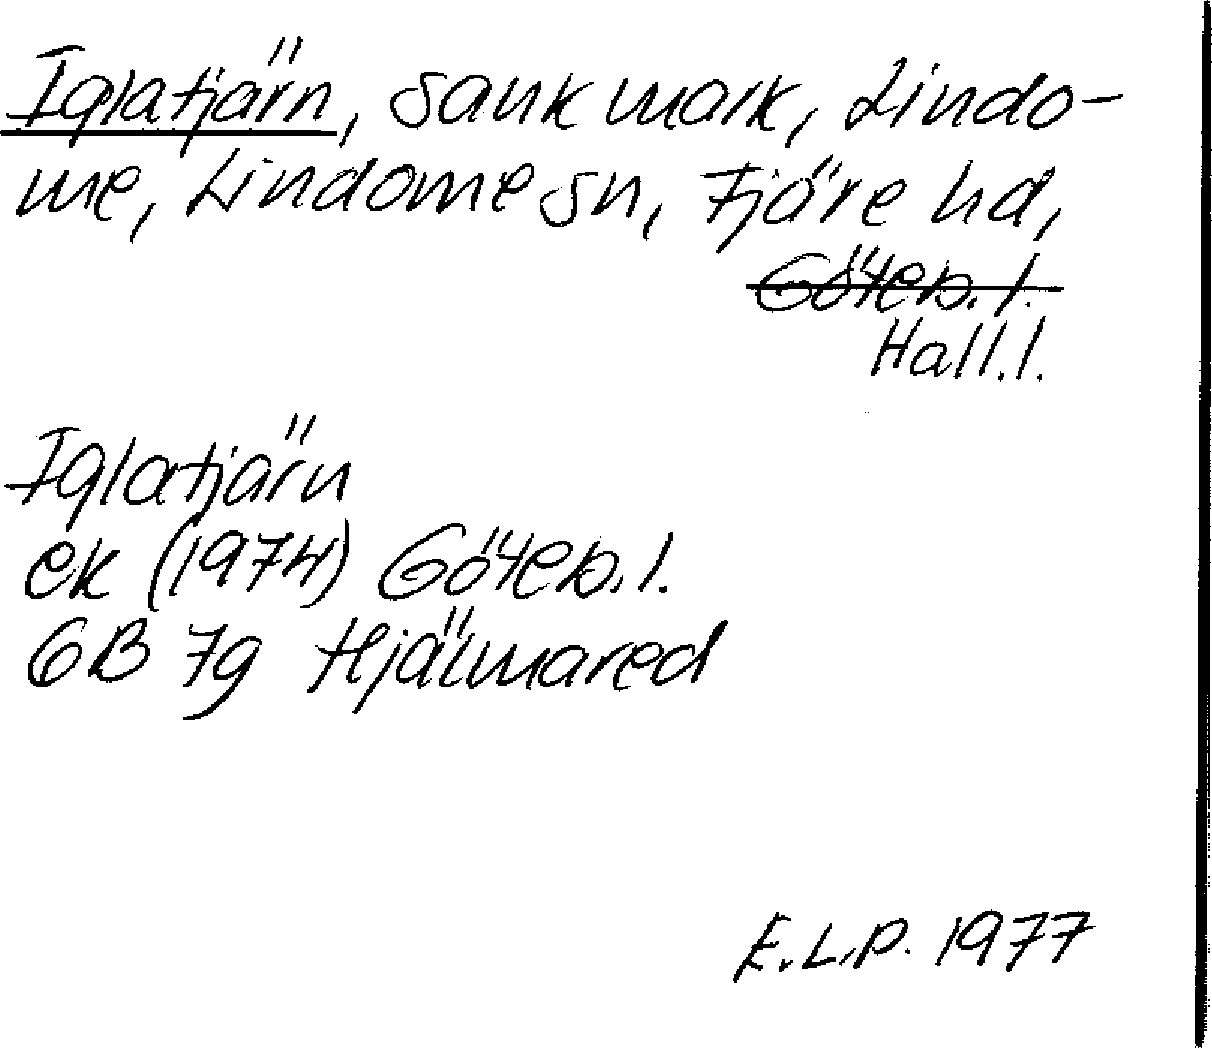 Iglatjärn, sank mark, Lindo-
me, Lindome sn, Fjäre hd,
Göteb. l.
Hall. l.
Iglatjärn
ek (1974) Göteb. l.
6B 7g Hjälmared
E.L.P. 1977